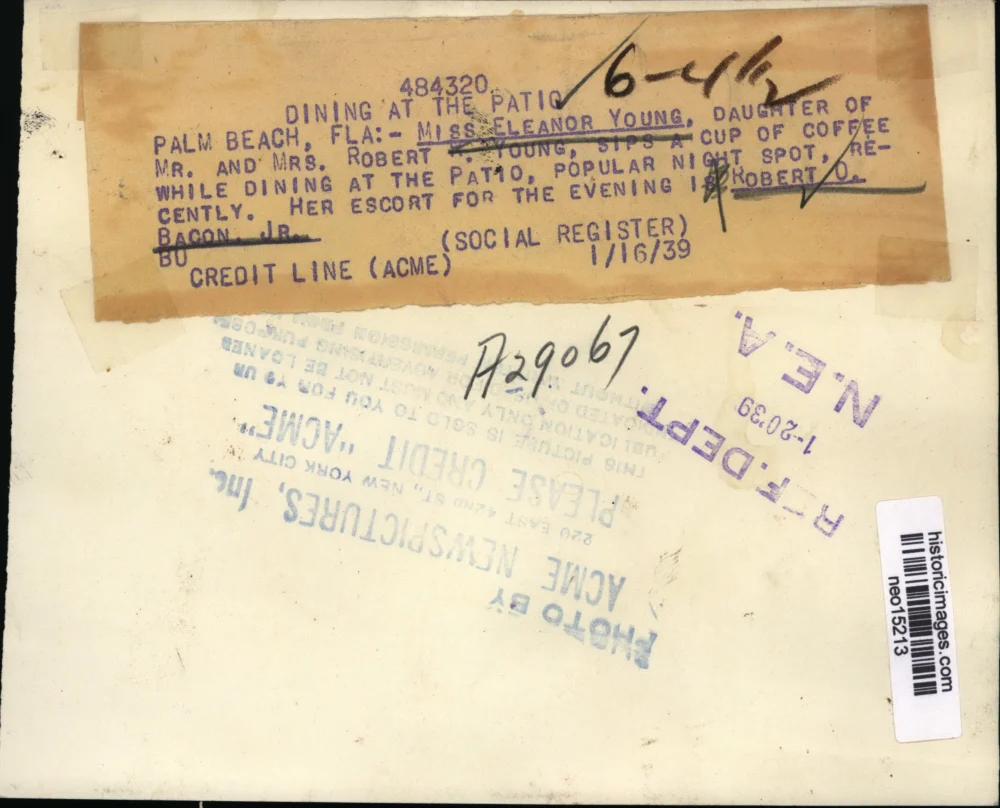 484320.
6-4 1/2
DINING AT THE PATIO
PALM BEACH, FLA:- MISS ELEANOR YOUNG, DAUGHTER OF
MR. AND MRS. ROBERT R. YOUNG, SIPS A CUP OF COFFEE
WHILE DINING AT THE PATIO, POPULAR NIGHT SPOT, RE-
CENTLY. HER ESCORT FOR THE EVENING IS ROBERT O.
BACON, JR.
BU (SOCIAL REGISTER)
CREDIT LINE (ACME) 1/16/39
A29067
REF. DEPT.
1-20'39
N.E.A.
PHOTO BY
ACME NEWSPICTURES, Inc.
220 EAST 42ND ST., NEW YORK CITY
PLEASE CREDIT "ACME"
THIS PICTURE IS SOLD TO YOU FOR YOUR
PUBLICATION ONLY AND MUST NOT BE LOANED
OR USED FOR ADVERTISING PURPOSES
WITHOUT PERMISSION
historicimages.com
neo15213